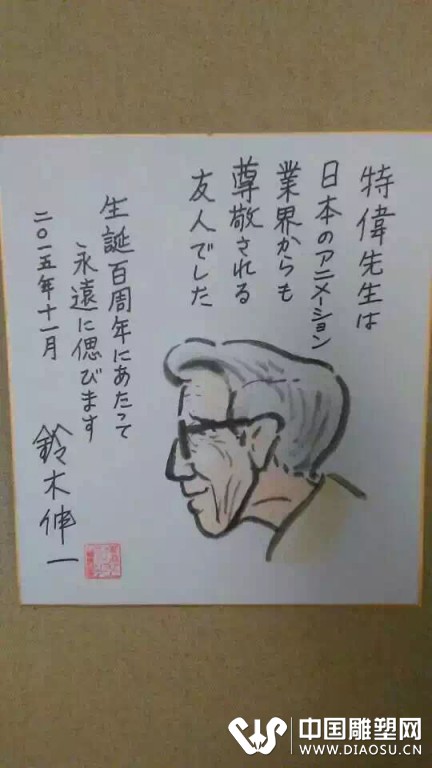 特偉先生は
日本のアニメーション
業界からも
尊敬される
友人でした
生誕百周年にあたって
永遠に偲びます
二〇一五年十一月
鈴木伸一
中国雕塑网
WWW.DIAOSU.CN